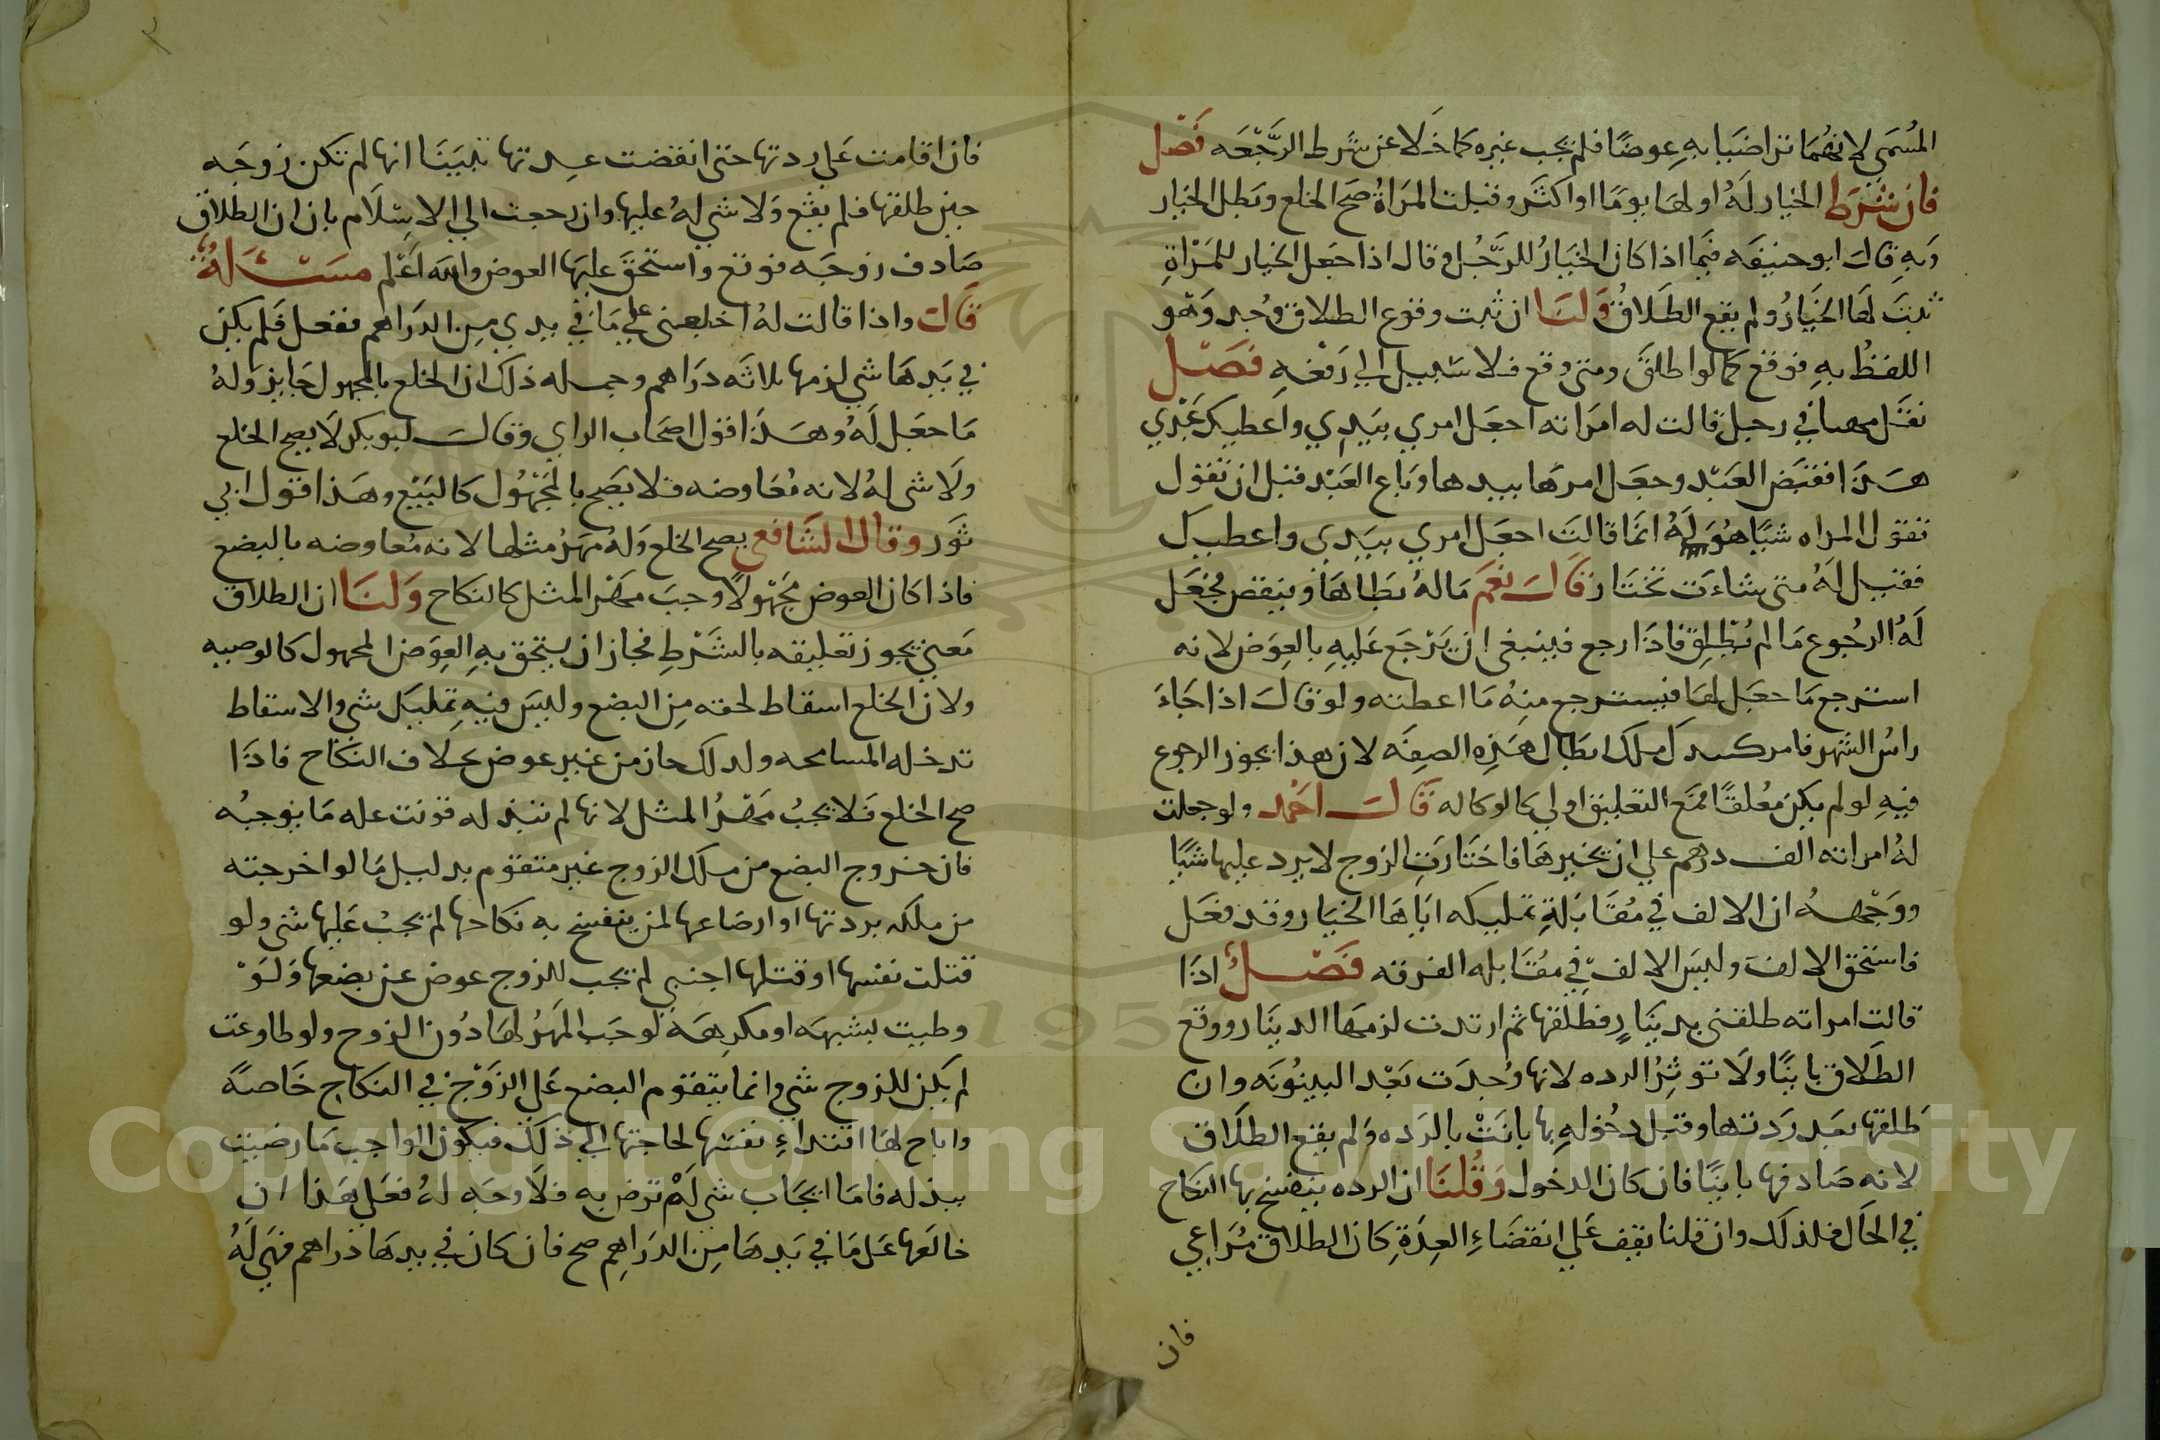 المُسَمى لانهُمَا تراضَيا بهِ عِوضًا فلم يجب غيره كما خَلا عن شرط الرَّجْعَه فَصْل
فان شَرَط الخيار لَهُ او لها يومًا او اكثَر وقبلت المَراةُ صَح الخلع وبَطل الخيار
وَبهِ قالَ ابو حنيفَه فيما اذا كان الخيَارُ للرَّجُل وقال اذا جَعل الخيار للمَرْاةِ
ثبتَ لها الخيَارُ ولم يقع الطَلاقُ وَلنَا ان ثبت وقوع الطلاق وُجد وَهو
اللفظُ بهِ فوقع كما لو اطلقَ ومتى وقع فلا سَبيل الي رَفعهِ فَصْل
نقَل مهنا في رجل قالت له امرَاته اجعَل امري بيَدِي واعطيك عَبْدي
هَذا فقبَض العَبْد وجعَل امرَها بيدها وبَاع العَبْد قبل ان تَقول
تقول المراه شيًا هُوَ لَهُ انما قالتَ اجعَل امري بيَدي واعطيك
فقيل لَهُ متى شاءَت تختَار قالَ نعَم مَا لهُ يَطَاها وينقض فجعَل
لَهُ الرجُوع مَا لم تُطلق فاذَا رجع فينبغي ان يَرْجَع عَليهِ بالعِوَض لانه
استرجع مَا جعَل لها فيسترجع منهُ مَا اعطته ولو قالَ اذا جَاءَ
راسُ الشهر فامرك بيدك ملك ابطَال هَذِهِ الصِفَه لان هذا يجوز الرجوع
فيهِ لو لم يكن مُعَلقًا فمَع التعليق اولي كالوكاله قالَ احْمد ولو جعلت
لهُ امراته الف درهم علي ان يخيرهَا فاختَارَت الزوج لا يرد عليها شيًا
ووَجْههُ ان الالف في مُقَابَلةِ تمليكه ايَاها الخيَار وقد فعَل
فاستحق الالف وليسَ الالف في مُقَابله الفرقه فَصْلٌ اذَا
قالت امراته طلقنى بدينَارٍ فطلقها ثم ارتدت لزمهَا الدينَار ووقع
الطَلاق باينًا ولَا توثرُ الرده لانها وُجدَت بَعْد البينُونَه وان
طَلقها بعَد رَدتها وقبل دخُولهِ بها بانَتْ بالرَده وَلم يقع الطلَاق
لانه صَادفها باينًا فان كَان الدخول وَقُلنَا ان الرده ينفسخ بها النكاح
في الحَال فلذلك وان قلنا يقف عَلي انقضَاءِ العِدَةِ كان الطلاق مُرَاعي
فان
فان اقامت عَلي ردتها حتى انقضت عِدتها تبيَنَا انها لم تكن زوجَه
حين طلقها فلم يقَع وَلا شي لهُ عليها وان رجعت الي الاسِلَام بان ان الطلاق
صَادف زوجَه فوقع واستحَقَ عليهَا العوض والله اعْلم مسْئَلهٌ
قَالَ واذا قالت لهُ اخلعنى علي مَا في يدي من الدرَاهم ففعل فلم يكن
في يَدهَا شي لزمها ثلاثَه درَاهم وجمله ذلك ان الخلع بالمجهول جَايز وَلهُ
مَا جعَل لَهُ وهَذا قول اصحَاب الراي وقالَ ابو بكر لَا يصح الخلع
ولَا شى لهُ لانه مُعَاوضه فلا يَصَح بالمجْهُول كالبَيْع وهَذا قول ابي
ثَور وقال الشَافعي يصح الخلع وَلهُ مهرُ مثلها لانه مُعاوضه بالبضع
فاذا كان العوض مجْهولًا وجبَ مهْر المثل كالنكاح وَلنَا ان الطلاق
مَعني يجوز تعليقه بالشَرْطِ فجاز ان يستحق بهِ العِوَض المجهول كالوصيه
ولان الخلع اسقاط لحقه مِن البضع وليسَ فيهِ تمليك شي والاسقاط
تدخله المسامحه ولذلك جاز من غير عوض بخلاف النكاح فاذَا
صح الخلع فَلا يجبُ مَهْرُ المثل لانها لم تبذله ولا فوتت عليه مَا يوجبُه
فان خروج البضع من ملك الزوج غير متقوم بدليل مَا لو اخرجته
من ملكه بردتها او ارضَاعها لمن ينفسخ به نكاحها لم يجبْ عَليها شى ولو
قتلت نفسها او قتلها اجنبي لم يجب للزوج عوض عن بضعها وَلوْ
وطيت بشبهَه او مكرهَه لوجَب المَهرُ لهَا دُون الزوج ولو طاوعت
لم يكن للزوج شي وانما يتقوم البضع عَلي الزوْج في النكاح خَاصة
واباح لهَا افتداءِ نفسها لحاجتها الي ذلكَ فيكون الواجب مَا رضيت
ببذله فاما ايجَاب شي لَمْ ترض به فلَا وجَه لهُ فعَلي هَذا ان
خالعها عَل مَا في يَدهَا مِن الدرَاهِم صح فان كان في يدهَا دراهم فهي لَهُ